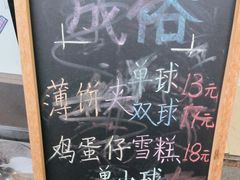 成俗
薄饼夹单球13元
双球17元
鸡蛋仔雪糕18元
单小球